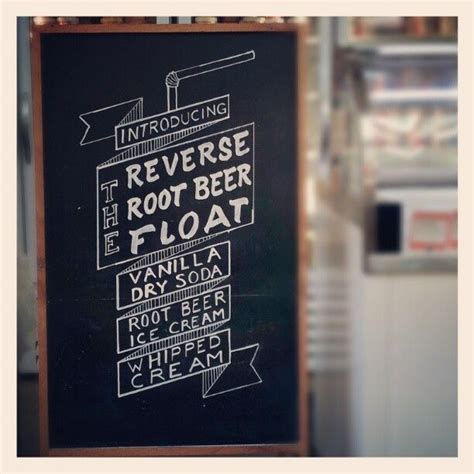 INTRODUCING
THE
REVERSE
ROOT BEER
FLOAT
VANILLA
DRY SODA
ROOT BEER
ICE CREAM
WHIPPED
CREAM